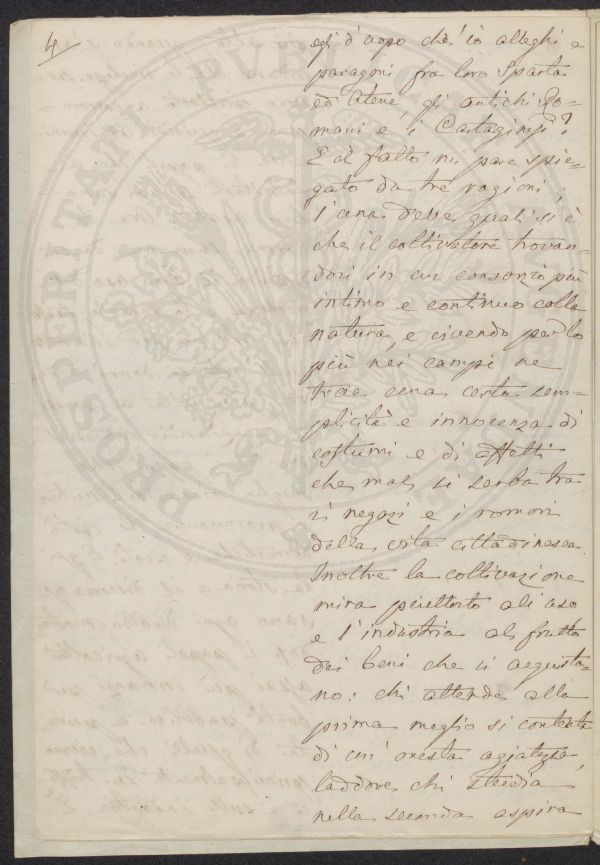 4
egli d'uopo ch'io alleghi a
paragoni fra loro Sparta
ed Atene, gli antichi Ro-
mani e i Cartaginesi?
E il fatto mi pare spie-
gato da tre ragioni;
l'una delle quali si è
che il coltivatore trovan-
dosi in un consorzio più
intimo e continuo colla
natura, e vivendo per lo
più nei campi ne
trae una certa sem-
plicità e innocenza di
costumi e di affetti
che mal si serba tra
i negozi e i romori
della vita cittadinesca.
Inoltre la coltivazione
mira piuttosto all'uso
e l'industria al frutto
dei beni che si acquista-
no: chi attende alla
prima meglio si contenta
di un'onesta agiatezza,
laddove chi studia
nella seconda aspira
PROSPERITATI PUBLIC